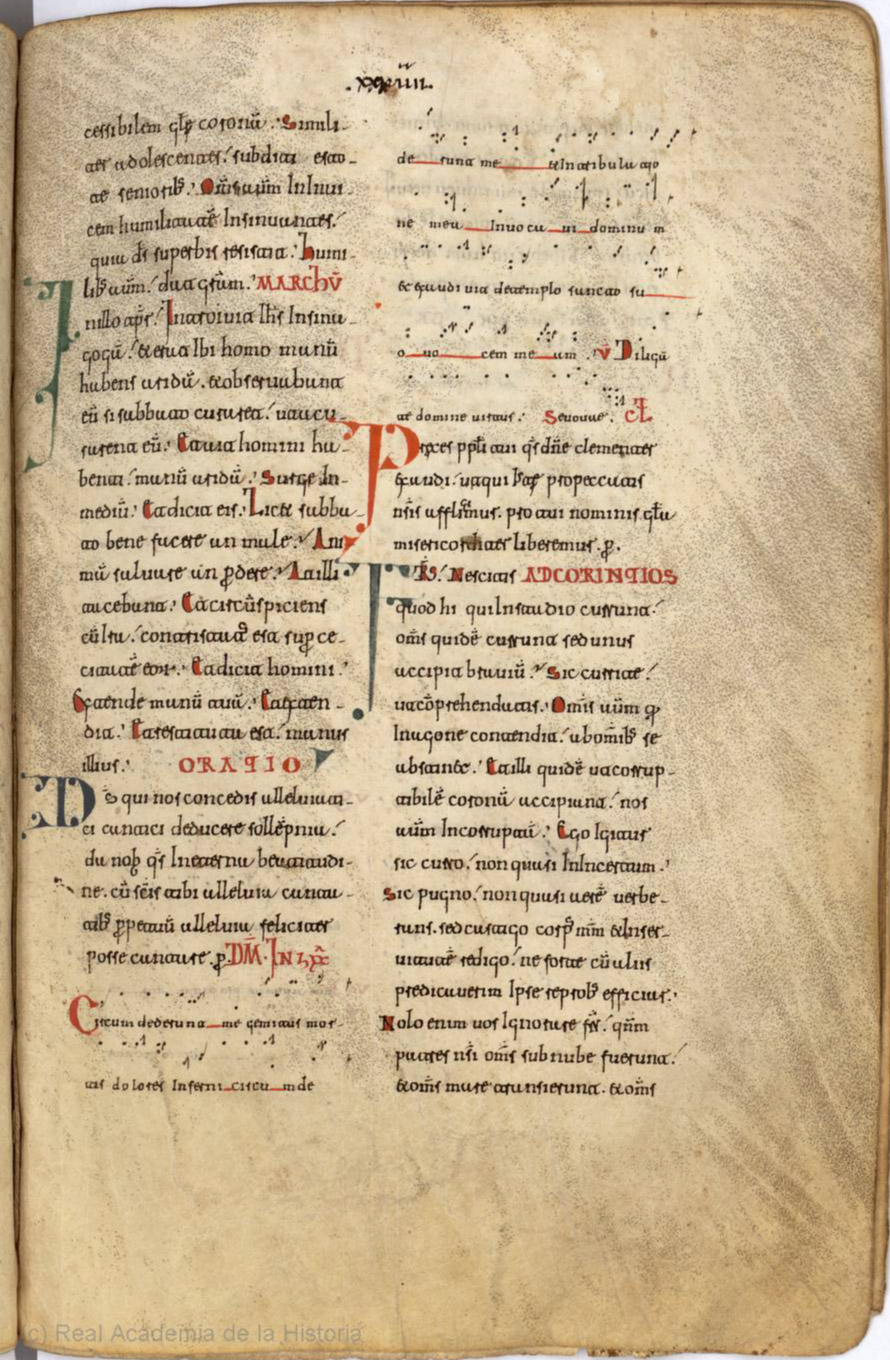 .xxviiii.
cessibilem glę coronā. Simili-
ter adolescentes: subditi esto-
te seniorib;. Om̄s aūm Inìnui-
cem humilitatē Insinuantes:
quia d̄s superbis resistit. humi-
lib; aūm: dat grām. MARCHŪ
In illo tp̄r: Introiuit Ih̄s Insina-
gogā: & erat Ibi homo manū
habens aridā. & obseruabant
eū si sabbato curaret: ut accu-
sarent eū. Et ait homini ha-
benti: manū aridā. Surge In-
mediū. Et dicit eis. Licet sabba-
to bene facere an male? Ani-
mā saluare an p̱dere? At illi
tacebant. Et circūspiciens
cū Ira: contristatus
Et dicit homini.
Extende manū tuā. Et exten-
dit. Et restituta est: manus
illius. ORATIO
Ds̄ qui nos concedis alleluiati-
ci cantici deducere sollēpnia:
da nob̄ q̄s In eterna beatitudi-
ne. cū sc̄is tibi alleluia cantan-
tib; p̱petuū alleluia feliciter
posse cantare. p̱. DM̄. IN LXX̄
Circum dederunt me gemitus mor-
tis dolores Inferni circum de
de runt me & In tribula tio
ne mea Inuo ca ui dominum
et exaudi uit de templo sancto su
o uo cem me am. V̄ Diliga
te domine uirtus. Seuouae. CŁ
Preces pp̄li tui q̄s dn̄e clementer
exaudi: ut qui Iuste propeccatis
nr̄is affligimus. pro tui nominis gł̄a
misericorditer liberemur. p̱.
FRS̄: Nescitis ADCORINTIOS
quod hi qui In stadio currunt:
om̄s quidē currunt sed unus
accipit brauiū? Sic currite:
ut cōprehendatis. Omnis aūm q̱
In agone contendit: ab omīb; se
abstinet. Et illi quidē ut corrup-
tibilē coronā accipiant: nos
aūm Incorruptā. Ego Igitur
sic curro: non quasi InIncertum.
Sic pugno: non quasi aerē uerbe-
rans. sed castigo corp̄ mm̄ & Inser-
uitutē redigo: ne forte cū aliis
predicauerim Ipse reprob; efficiar.
Nolo enim uos Ignorare fr̄s: qn̄m
patres nr̄i om̄s sub nube fuerunt:
& om̄s mare transierunt. & om̄s
(c) Real Academia de la Historia